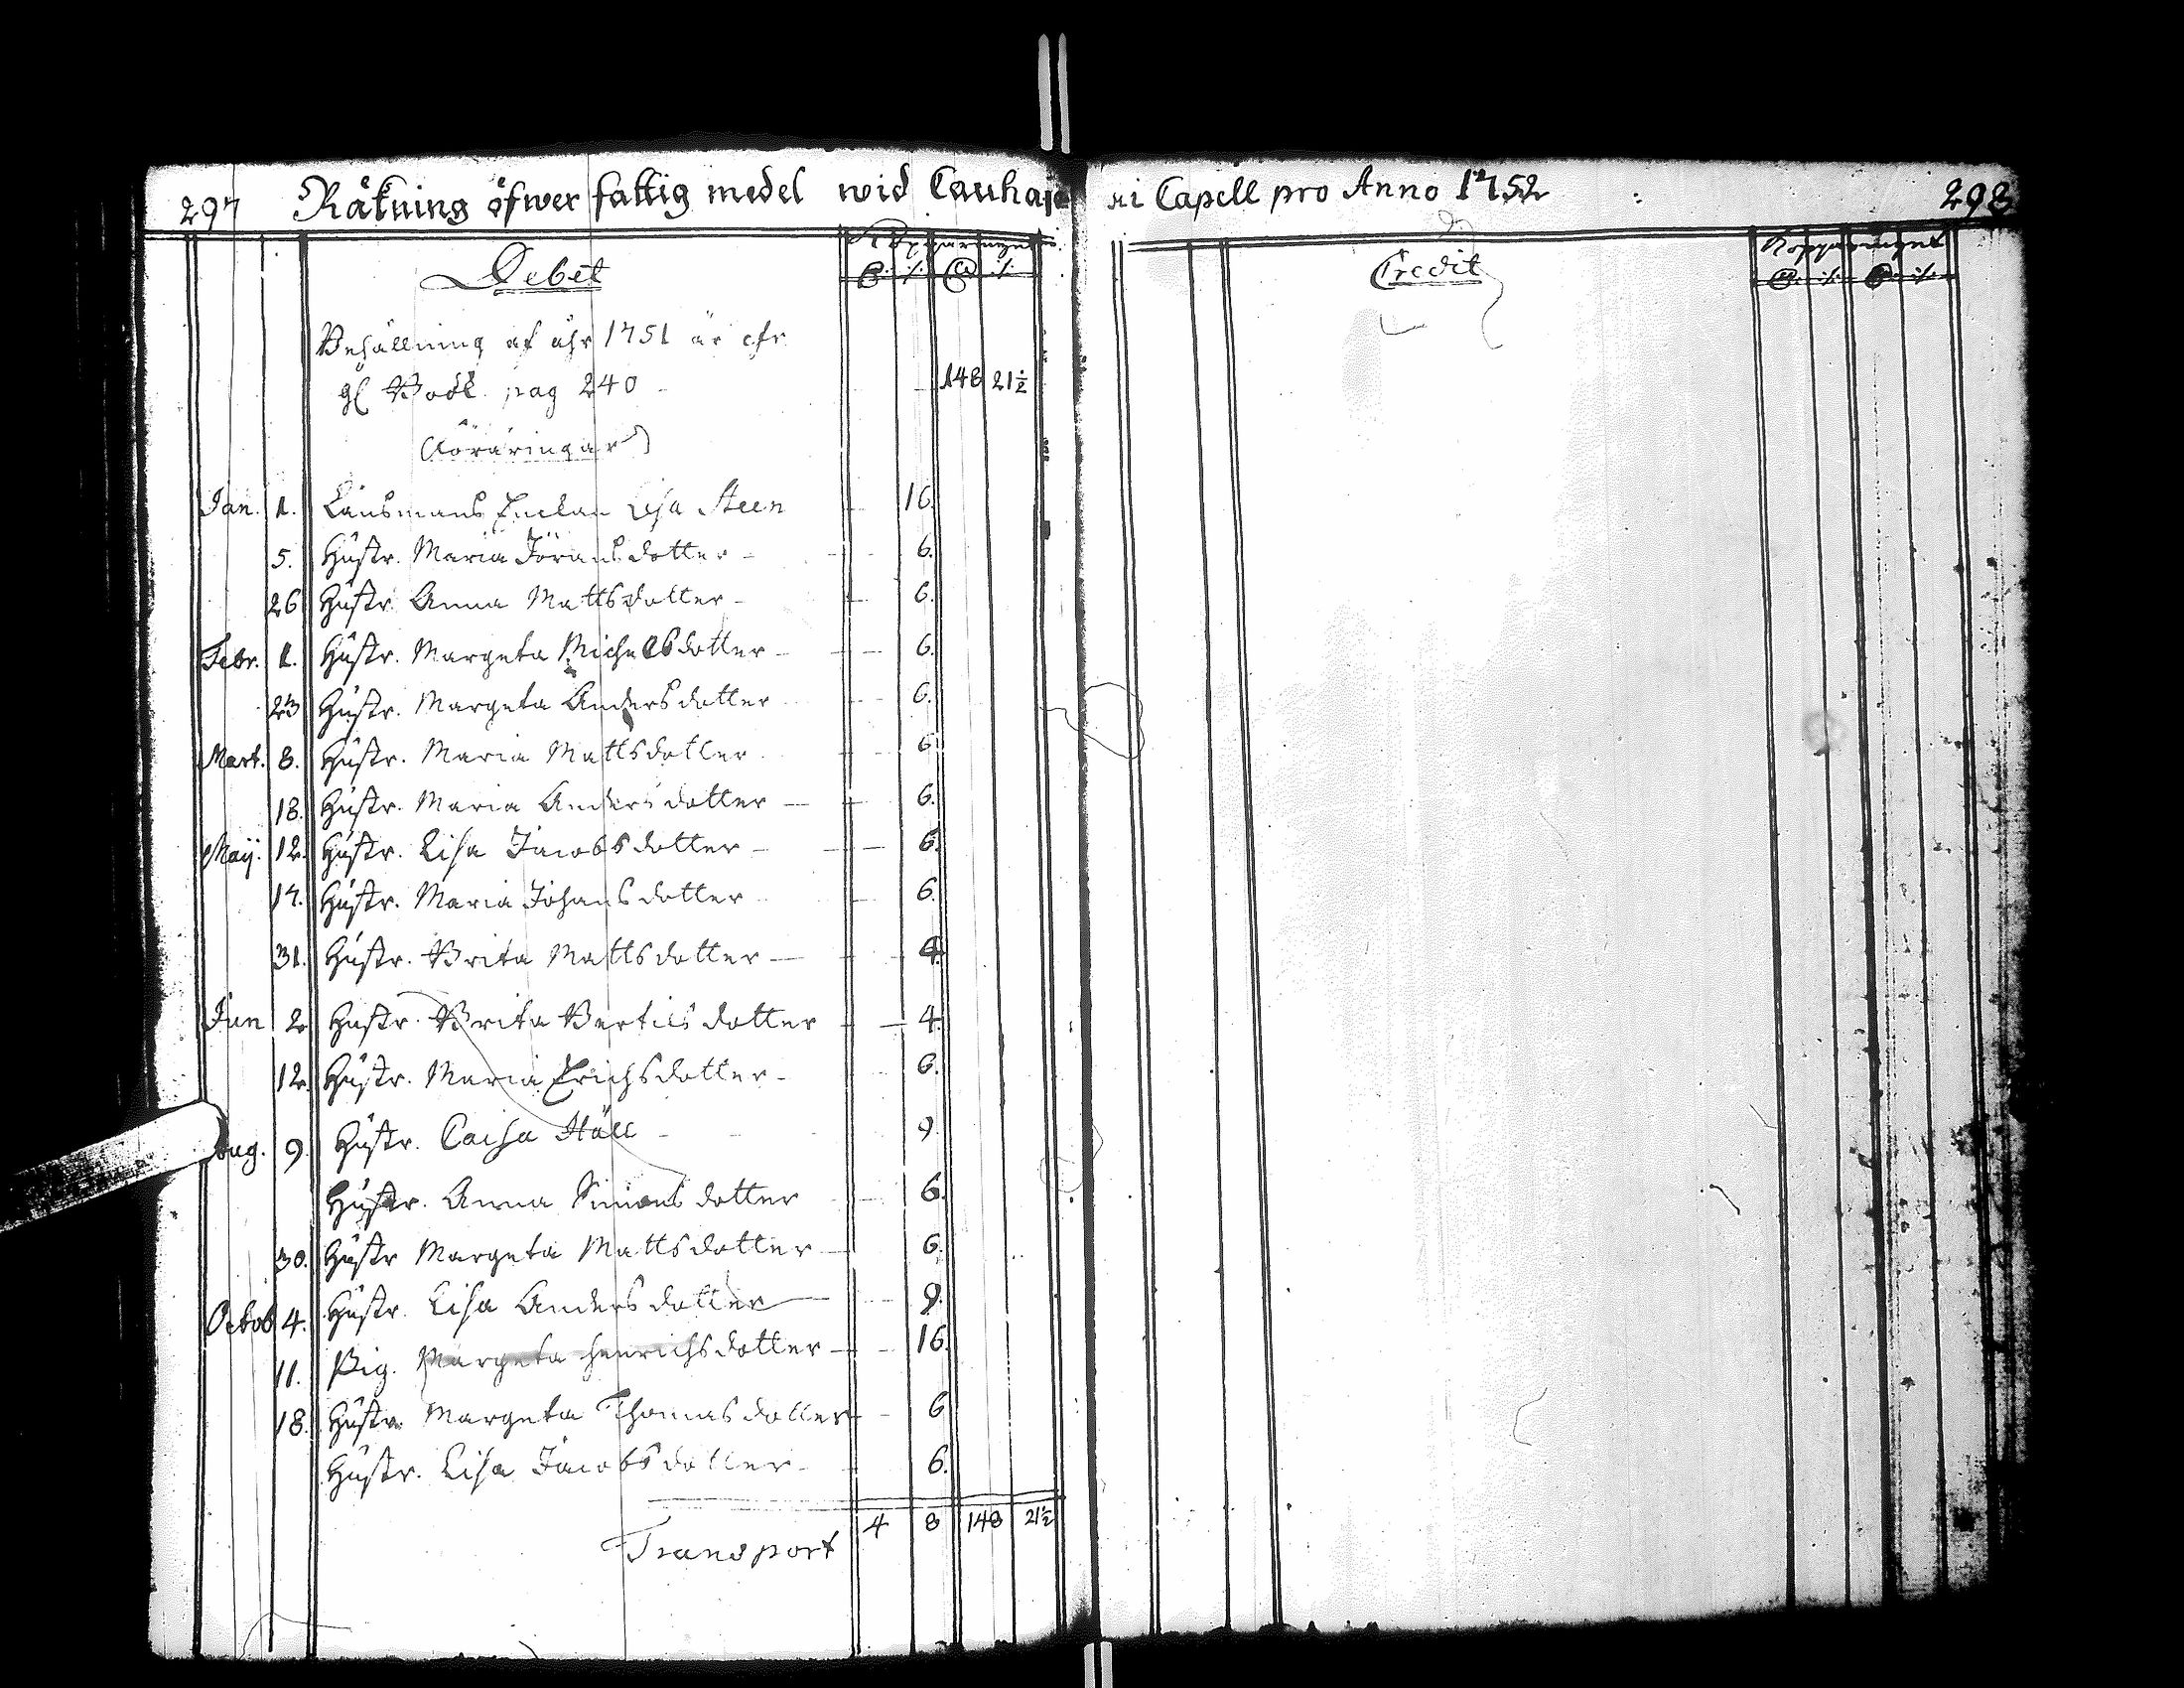 297 Räkning öfwer fattig medel wid Cauhajo
Debet
Behållning af åhr 1751 är efr
gl Book. pag 240 - 148 21½
(Föräringar)
Jan. 1. Länsmans Enckan Lisa Steen 16.
5. Hustr. Maria Jöransdotter - 6.
26 Hustr. Anna Mattsdotter - 6.
Febr. 1. Hustr. Margeta Michelsdotter - 6.
23 Hustr. Margeta Andersdotter 6.
Mart. 8. Hustr. Maria Mattsdotter 6
18. Hustr. Maria Andersdotter - 6.
Maij. 12. Hustr. Lisa Jacobsdotter - 6.
17. Hustr. Maria Johansdotter 6.
31. Hustr. Brita Mattsdotter - 4.
Jun 2 Hustr. Brita Bertilsdotter - 4.
12. Hustr. Maria Erichsdotter - 6.
Aug. 9. Hustr. Caisa Häll - 9.
Hustr. Anna Simonsdotter 6.
30. Hustr Margeta Mattsdotter - 6.
Octob 4. Hustr. Lisa Andersdotter - 9.
11. Pig. Margeta Henrichsdotter - 16.
18. Hustr Margeta Thomasdotter - 6
Hustr. Lisa Jacobsdotter - 6.
Transport 4 8 148 21½
ki Capell pro Anno 1752 298
Kopparmynt
Credit